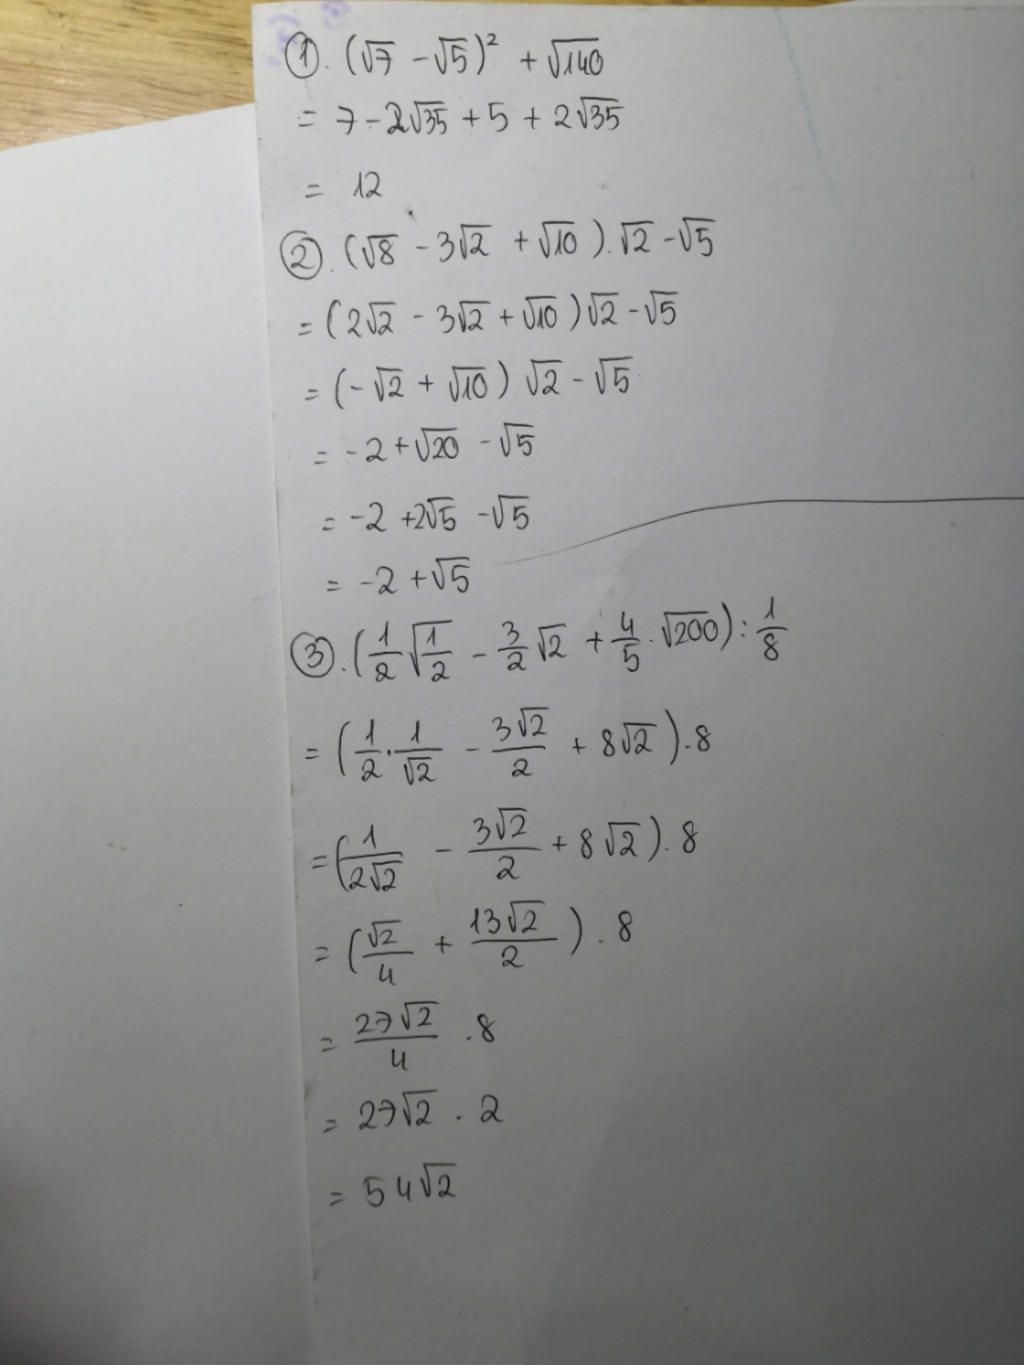 ①. (√7 - √5)² + √140
= 7 - 2√35 + 5 + 2√35
= 12
②. (√8 - 3√2 + √10).√2 - √5
= (2√2 - 3√2 + √10)√2 - √5
= (-√2 + √10) √2 - √5
= -2 + √20 - √5
= -2 + 2√5 - √5
= -2 + √5
③. (1/2 √(1/2) - 3/2 √2 + 4/5 . √200) : 1/8
= (1/2 . 1/√2 - 3√2/2 + 8√2) . 8
= (1/(2√2) - 3√2/2 + 8√2) . 8
= (√2/4 + 13√2/2) . 8
= 27√2/4 . 8
= 27√2 . 2
= 54√2